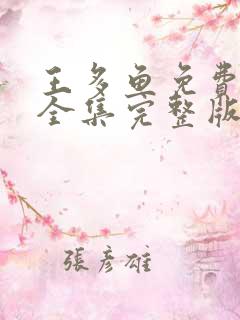 王多鱼免费
全集完整版
張彥雄